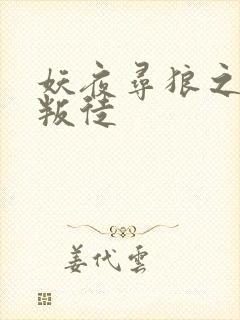 妖夜尋狼之
叛徒
姜代雲